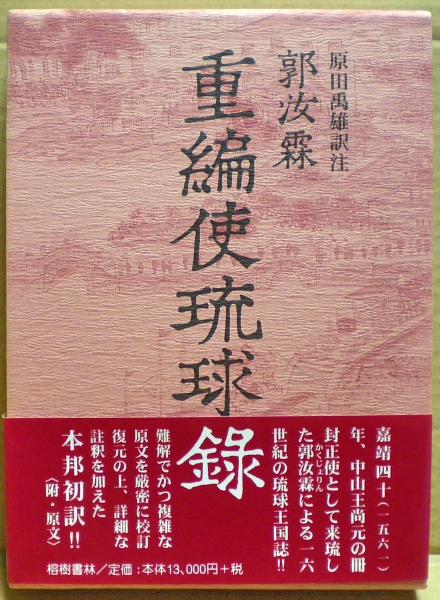 原田禹雄訳注
郭汝霖
重編使琉球錄
嘉靖四十（一五六一）
年、中山王尚元の冊
封正使として来琉し
かくじょりん
た郭汝霖による一六
世紀の琉球王国誌!!
難解でかつ複雑な
原文を厳密に校訂
復元の上、詳細な
註釈を加えた
本邦初訳!!
〈附・原文〉
榕樹書林／定価：本体13,000円＋税